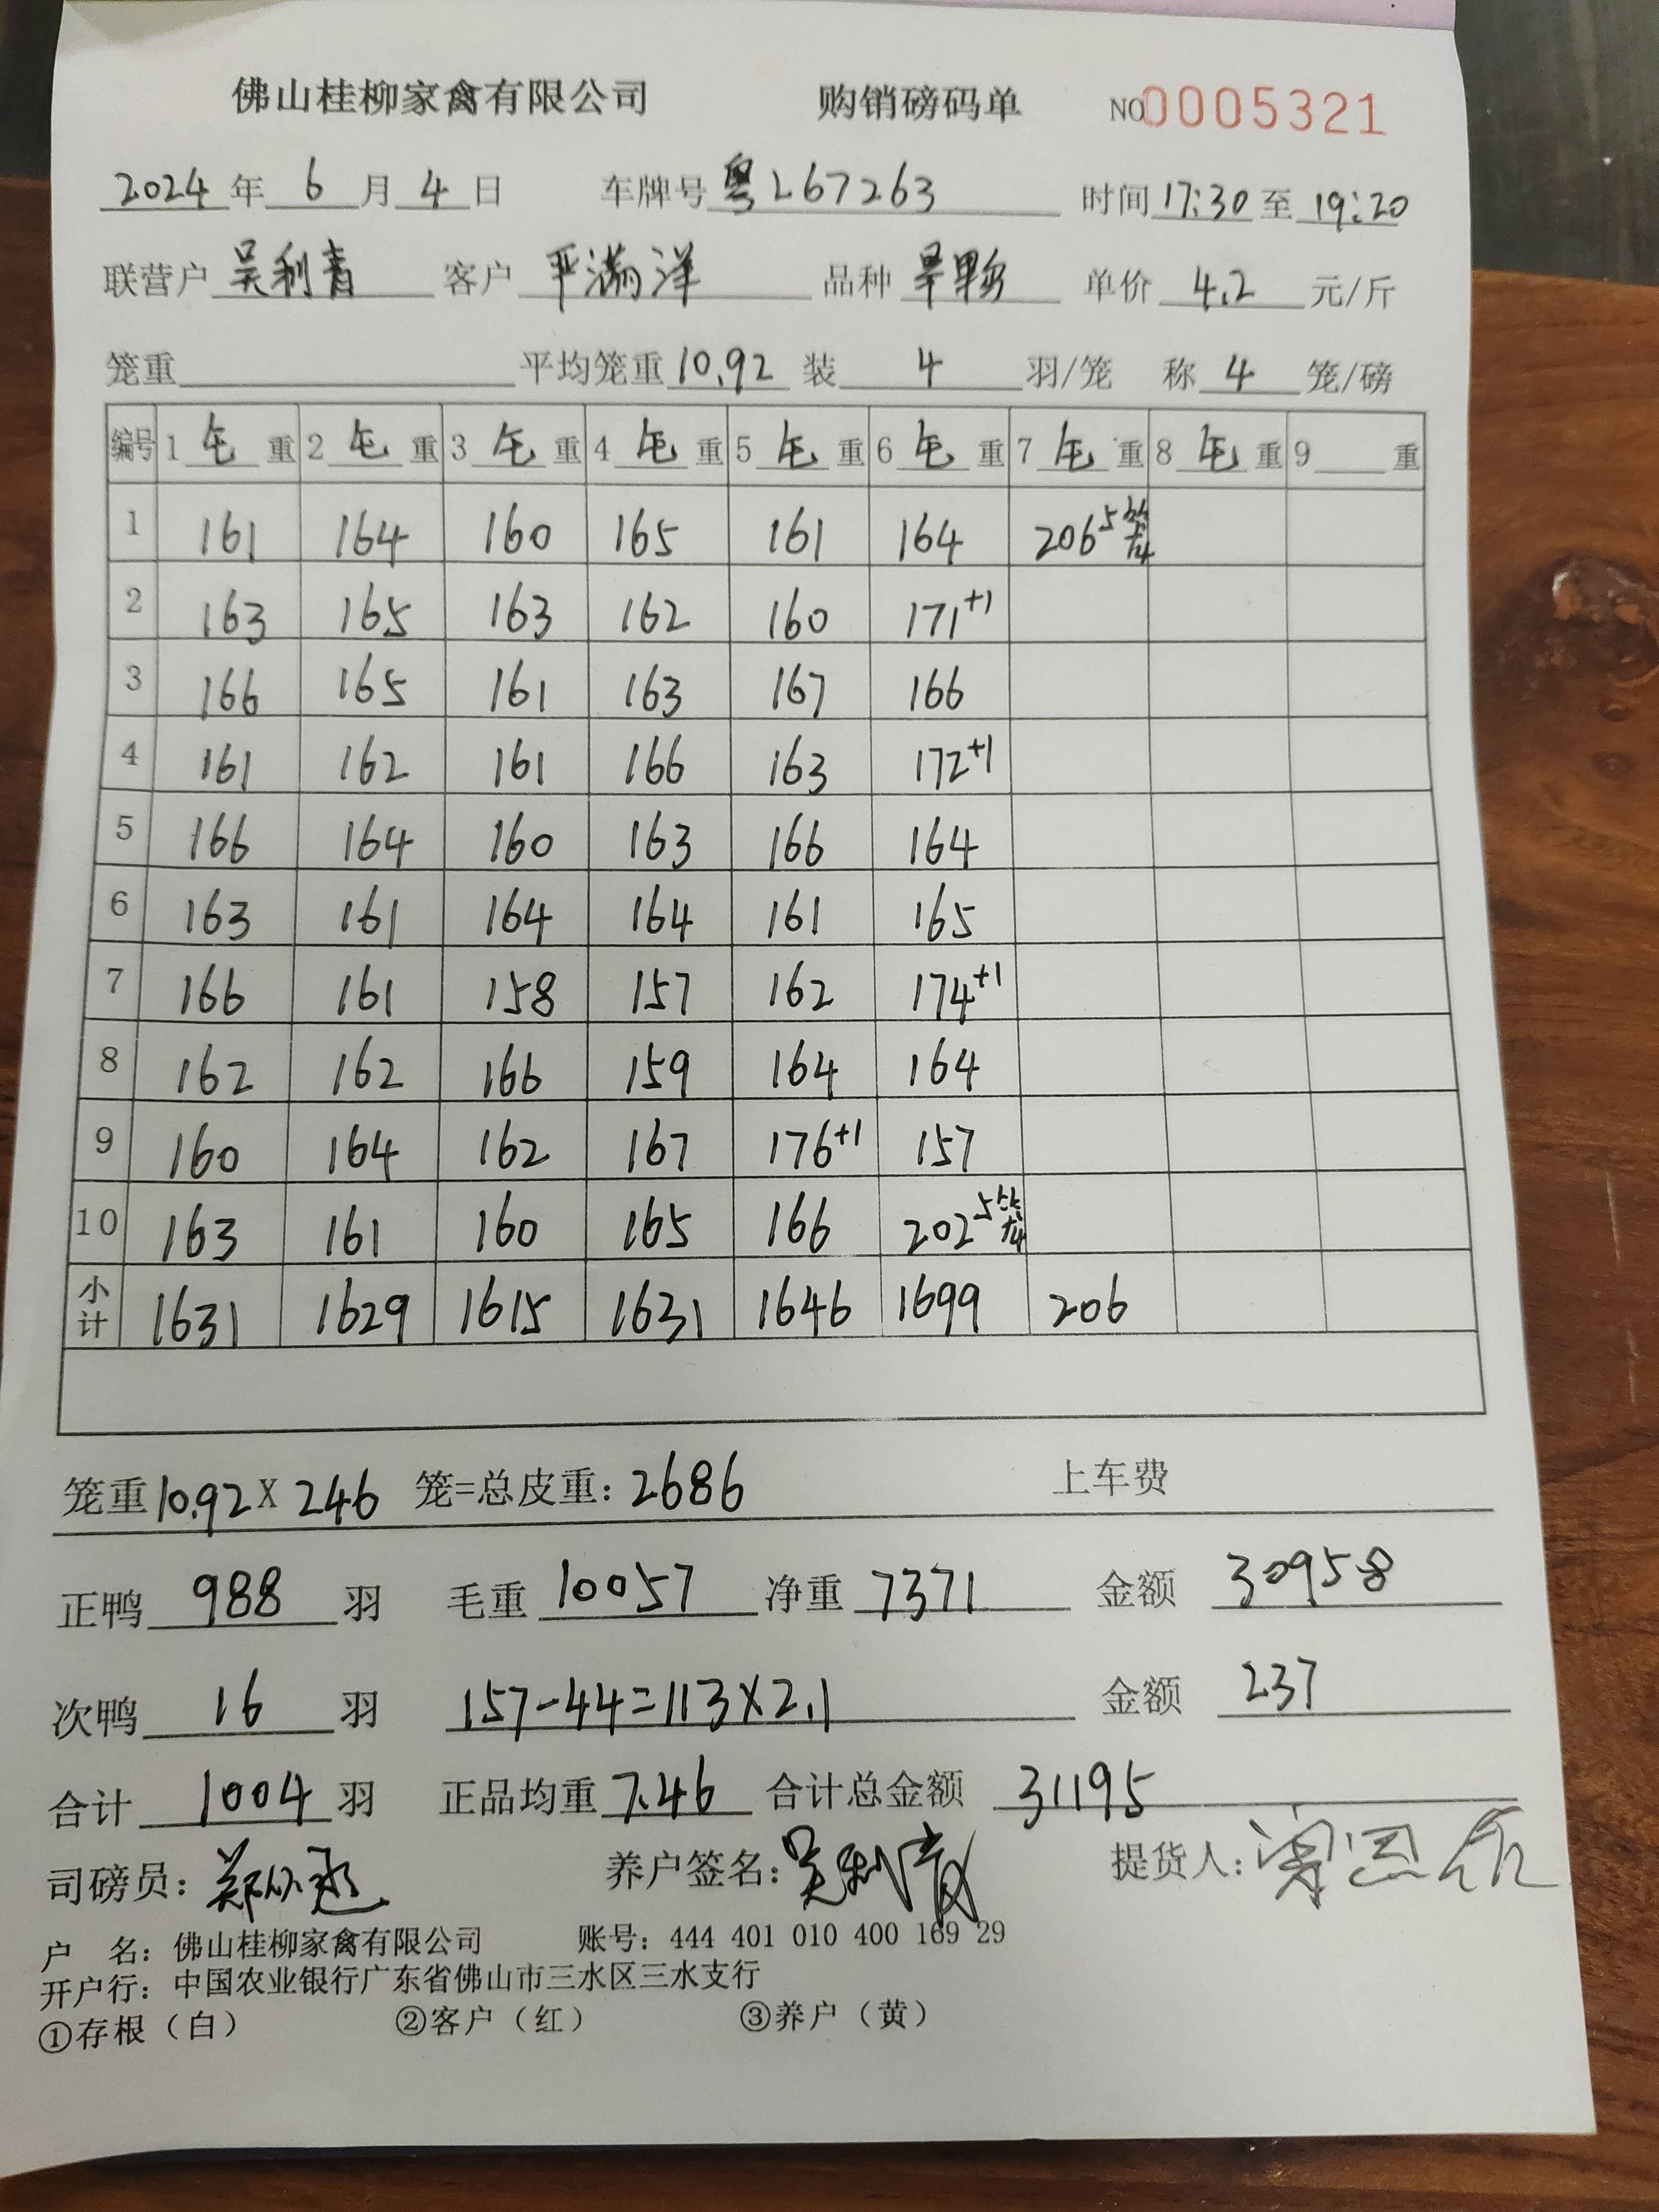 佛山桂柳家禽有限公司 购销磅码单 NO0005321
2024年6月4日 车牌号粤L67263 时间17:30至19:20
联营户吴利青 客户严满洋 品种 单价4.2元/斤
笼重 平均笼重10.92 装4羽/笼 称4笼/磅
编号 1毛重 2毛重 3毛重 4毛重 5毛重 6毛重 7毛重 8毛重 9重
1 161 164 160 165 161 164 206 5笼
2 163 165 163 162 160 171+1
3 166 165 161 163 167 166
4 161 162 161 166 163 172+1
5 166 164 160 163 166 164
6 163 161 164 164 161 165
7 166 161 158 157 162 174+1
8 162 162 166 159 164 164
9 160 164 162 167 176+1 157
10 163 161 160 165 166 202 5笼
小计 1631 1629 1615 1631 1646 1699 206
笼重10.92X246笼=总皮重:2686 上车费
正鸭988羽 毛重10057 净重7371 金额30958
次鸭16羽 157-44=113×2.1 金额237
合计1004羽 正品均重7.46 合计总金额31195
司磅员: 养户签名:吴利青 提货人:
户 名:佛山桂柳家禽有限公司 账号:444 401 010 400 169 29
开户行:中国农业银行广东省佛山市三水区三水支行
①存根(白) ②客户(红) ③养户(黄)